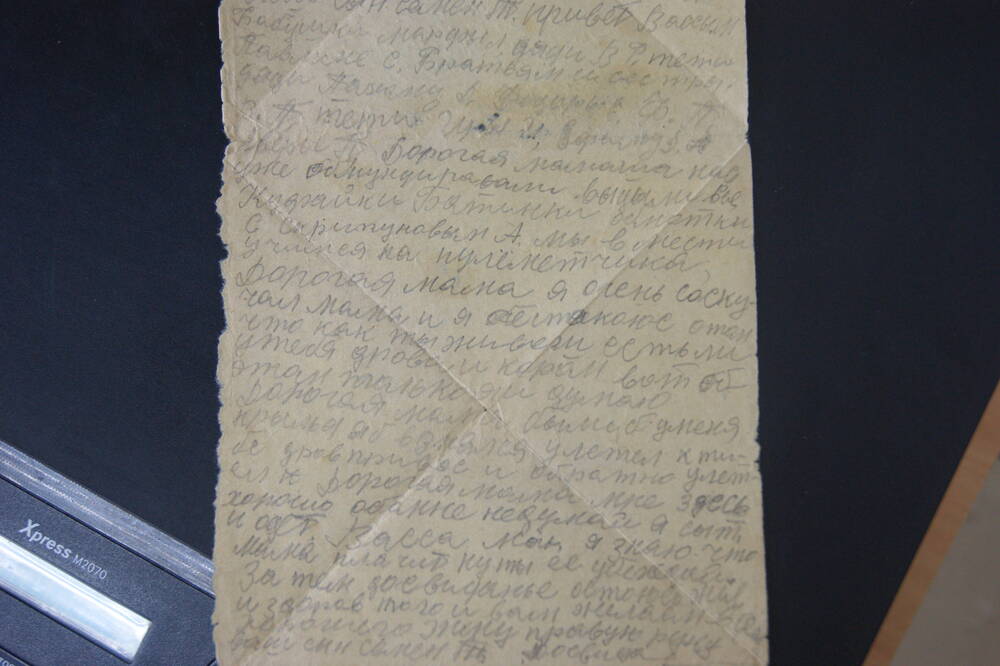 сын семен Т. привет Васим
Бабушки дяди В Т. тети
с. Братьям и сестру
дяди
тети
Дорогая мамаша нас
уже обмундировали выдали все
Куфайки Батинки обмотки
С Скрипуновым А. мы вмести
учимся на пулеметчика,
Дорогая мама я очень соску-
чал мама и я беспакоюс отом
что как ты живеш есть ли
у тебя дрова и корм вот об
этом только я и думаю
Дорогая мама былиб у меня
крылья яб поднялся улетел к ти-
бе дров и обратно улет-
ел Дорогая мама мне здесь
хорошо обамне недумай я сыт
и одт. Васса мак я знаю что
мама плачит ну ты ее утешай
За тем досвиданье остоюс жив
и здоров того и вам желаю
хорошего жму правую руку
ваш сын семен Т.
Xpress M2070